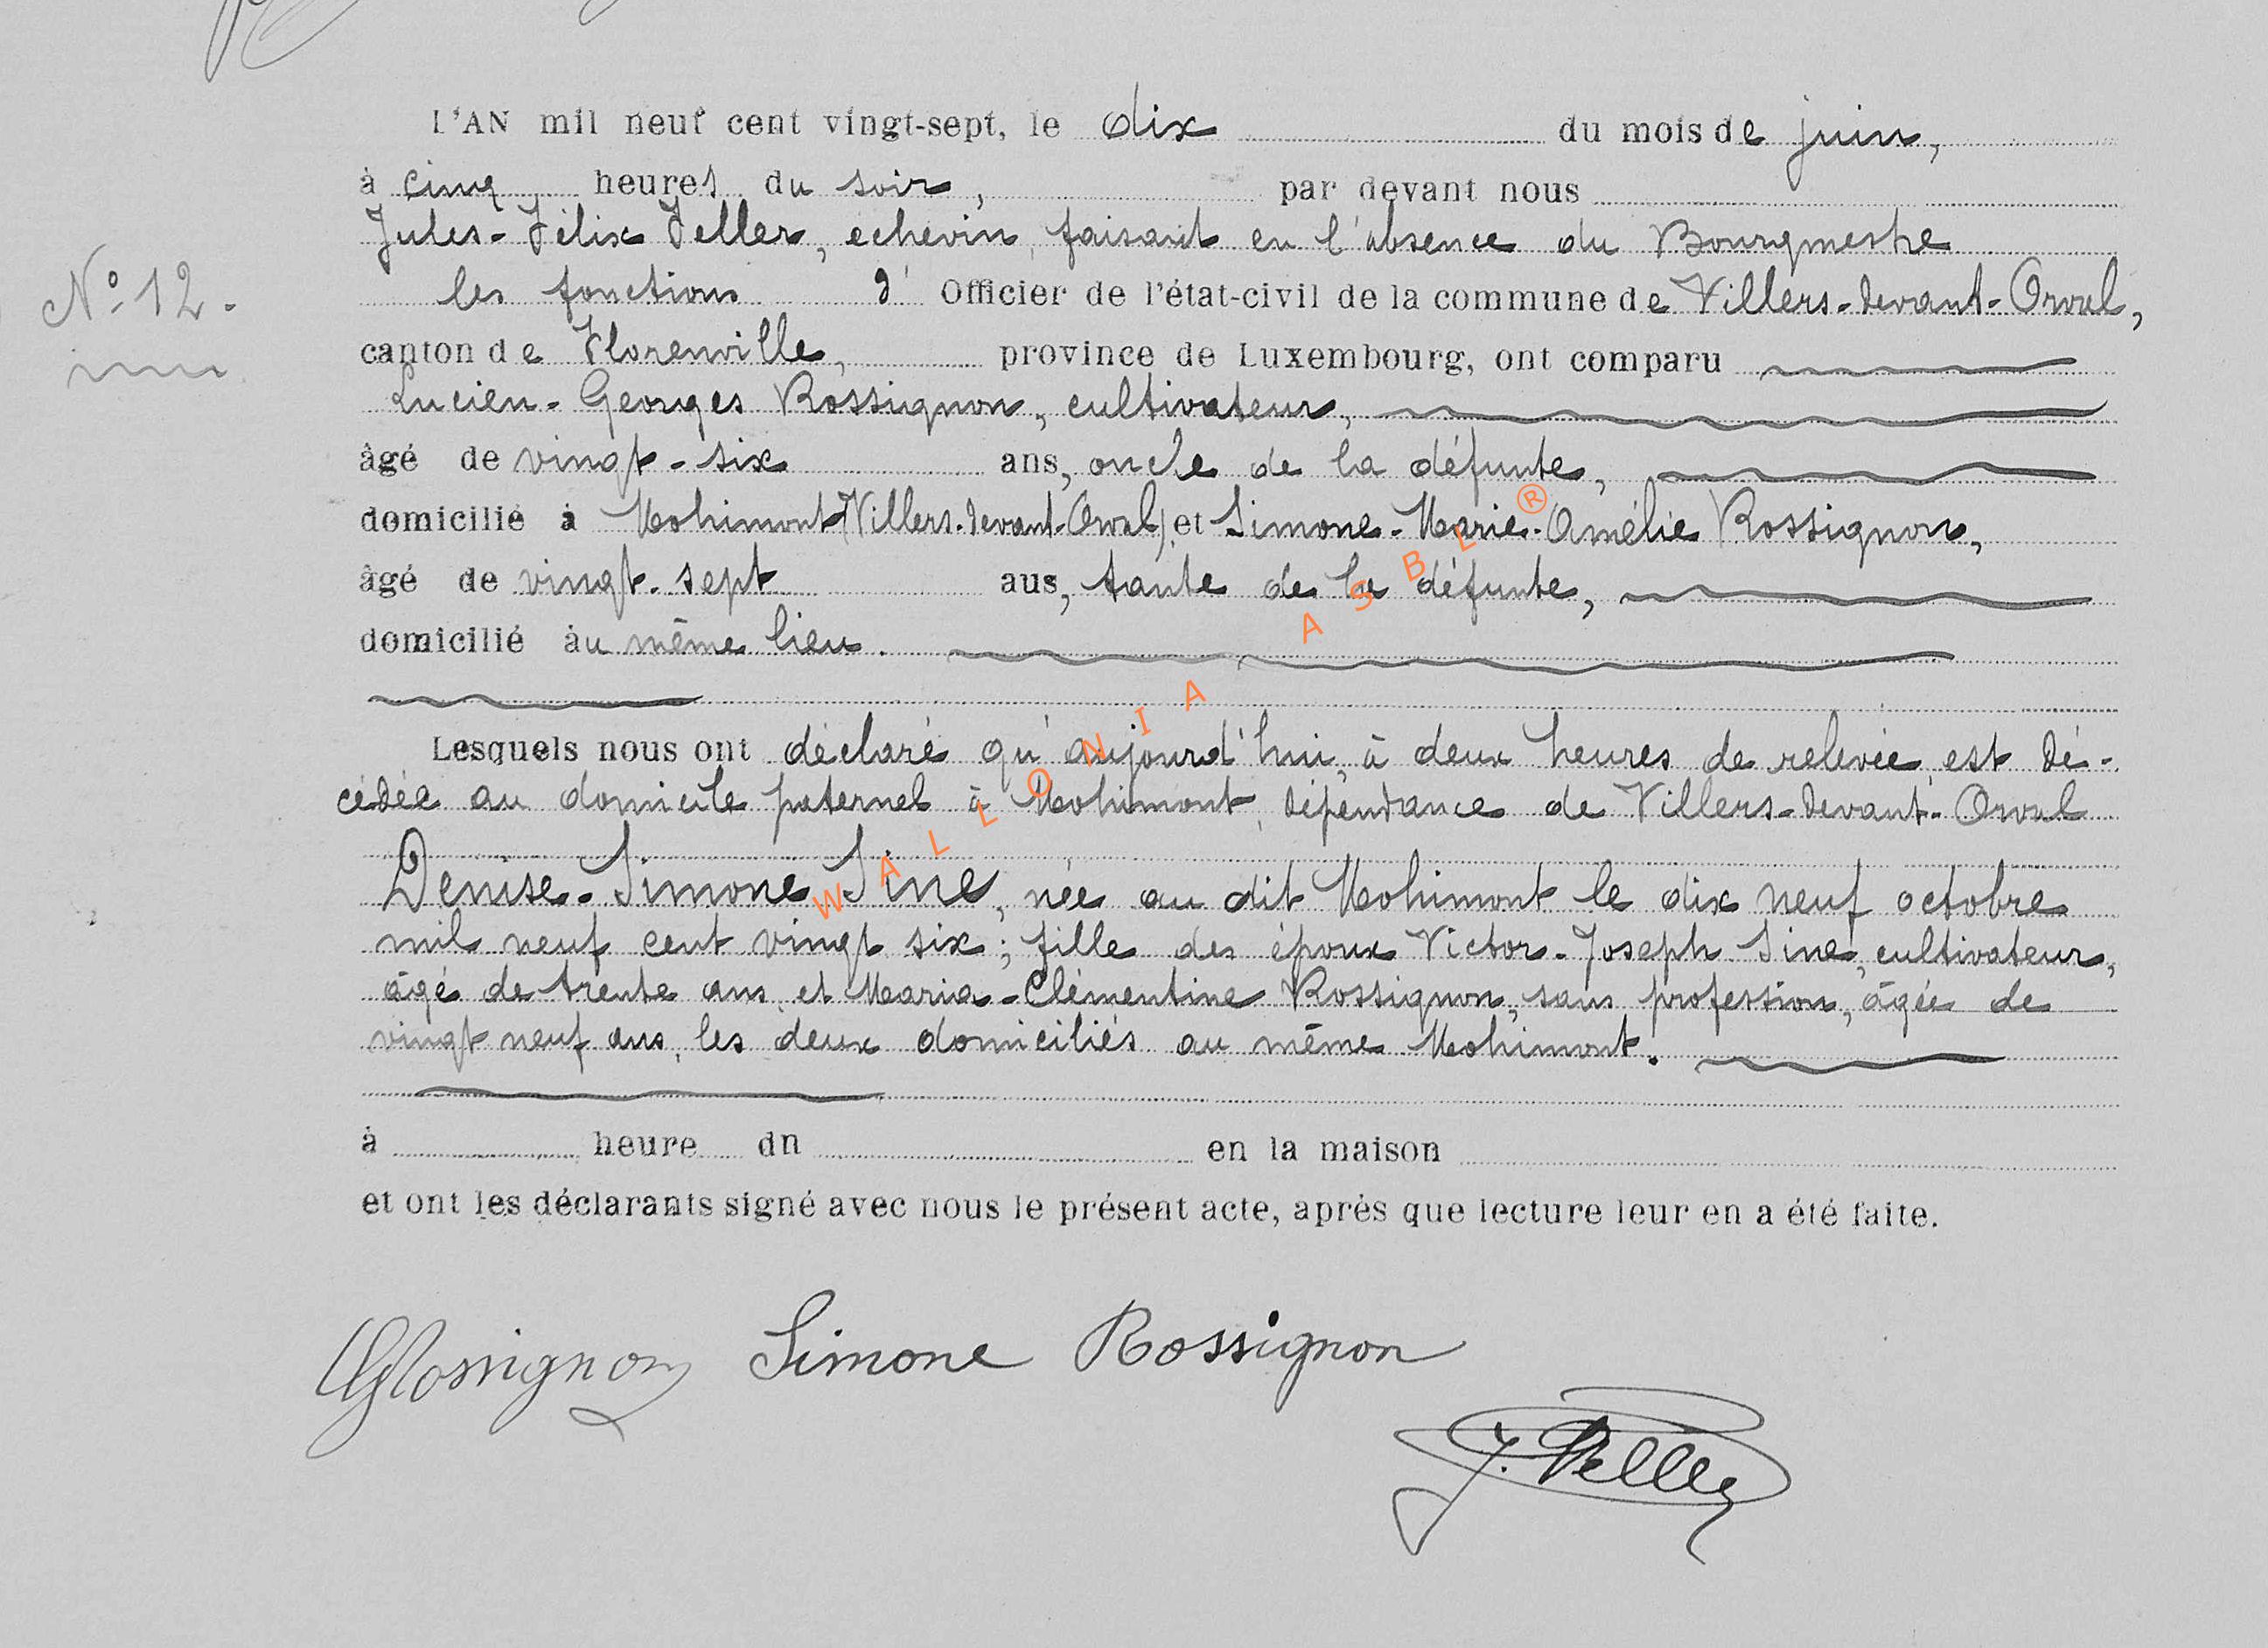 L'AN mil neuf cent vingt-sept, le dix du mois de juin,
à cinq heures du soir, par devant nous
Jules-Félix Feller, echevin, faisant en l'absence du Bourgmestre
No 12.
les fonctions d' Officier de l'état-civil de la commune de Villers-devant-Orval,
canton de Florenville, province de Luxembourg, ont comparu
Lucien-Georges Rossignon, cultivateur,
âgé de vingt-six ans, oncle de la défunte,
domicilié à Mohimont (Villers-devant-Orval) et Simone-Marie-Amélie Rossignon,
âgé de vingt-sept aus, tante de la défunte,
domicilié àu même lieu.
Lesquels nous ont déclaré qu'aujourd'hui, à deux heures de relevée, est dé-
cédée au domicile paternel à Mohimont, dépendance de Villers-devant-Orval
Denise-Simone Sine, née au dit Mohimont le dix neuf octobre
mil neuf cent vingt six; fille des époux Victor-Joseph Sine, cultivateur,
âgé de trente ans et Maria-Clémentine Rossignon, sans profession, âgée de
vingt neuf ans, les deux domiciliés au même Mohimont.
à heure dn en la maison
et ont les déclarants signé avec nous le présent acte, après que lecture leur en a été faite.
Rossignon Simone Rossignon
J. Feller
WALLONIA ASBL ®